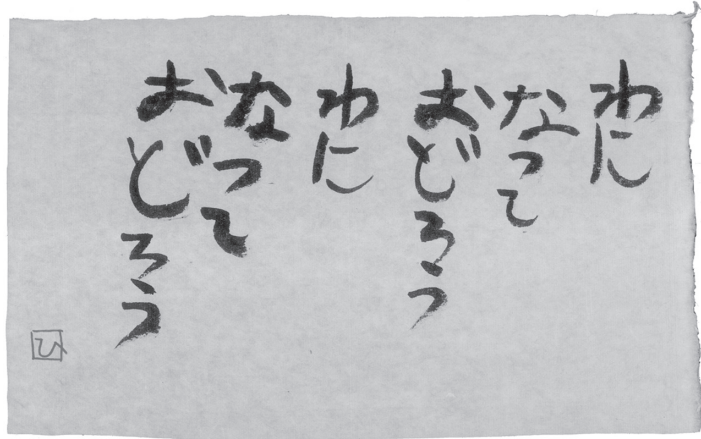 わに
なって
おどろう
わに
なって
おどろう
ひ